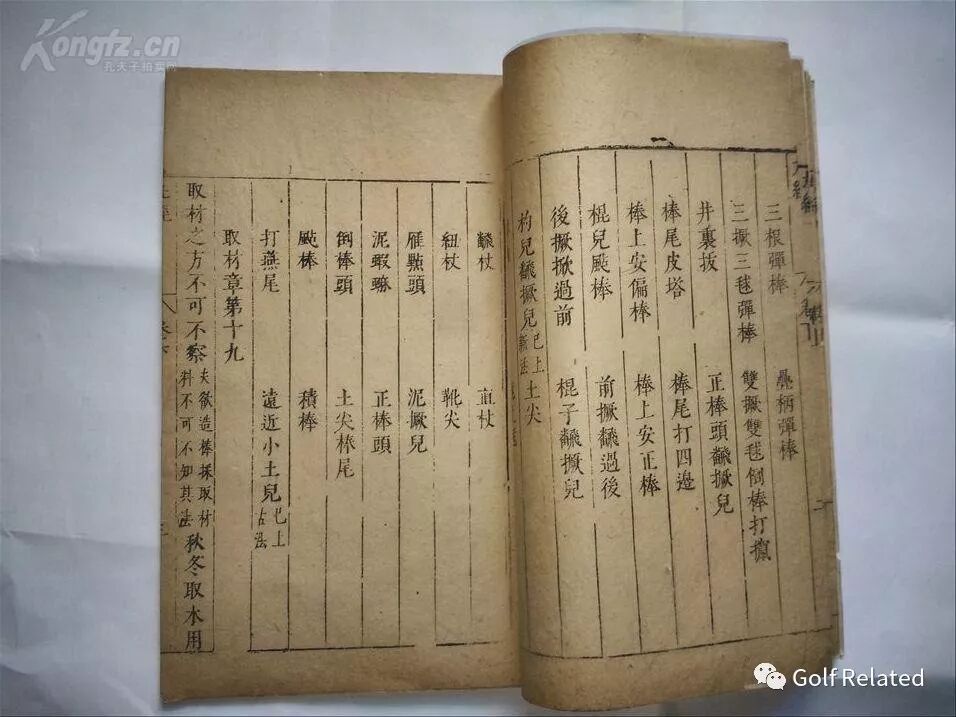 Kongfz.cn
孔夫子拍卖网
三根彈棒
三撅三毬彈棒 雙撅雙毬倒棒打
井裏拔 正棒頭 撅兒
棒尾皮塔 棒尾打四邊
棒上安偏棒 棒上安正棒
棍兒颩棒 前撅 過後
後撅掀過前 棍子 撅兒
杓兒 撅兒已上新法土尖
杖 直杖
紐杖 靴尖
雁點頭 泥撅兒
泥蝦 正棒頭
倒棒頭 土尖棒尾
颩棒 積棒
打燕尾 遠近小土兒已上古法
取材章第十九
取材之方不可不察夫欲造棒採取材料不可不知其法秋冬取木用
Golf Related